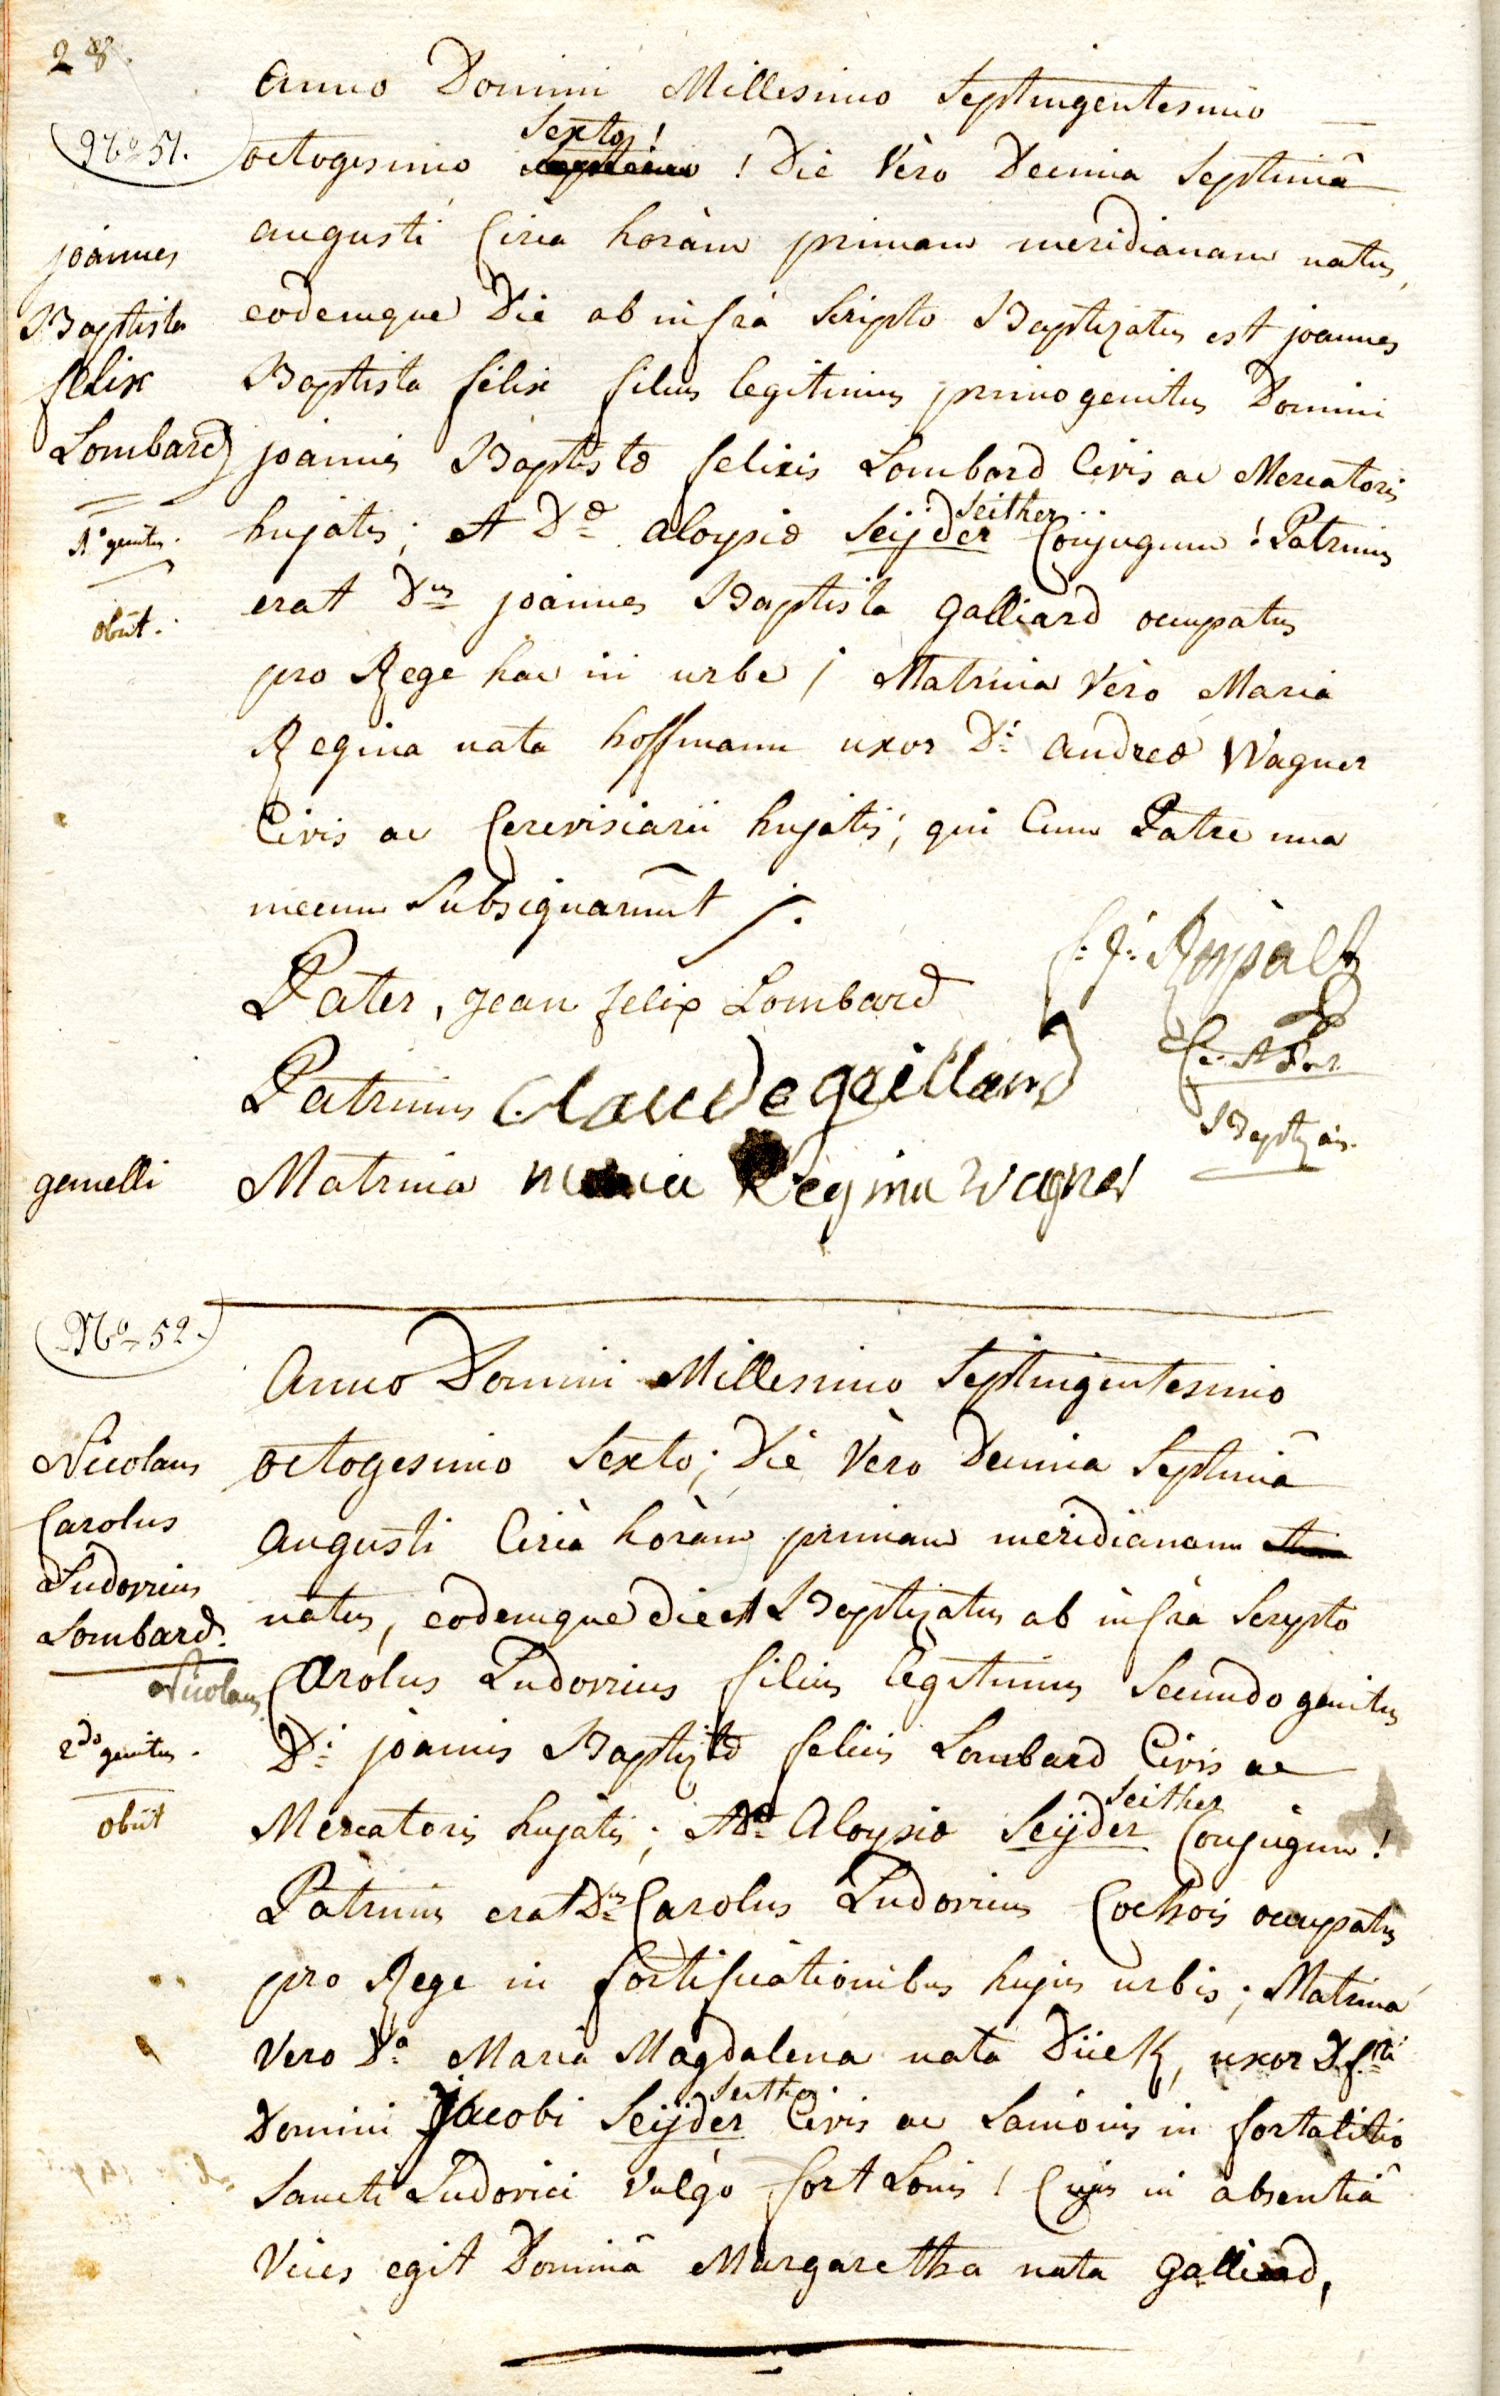 28.
Nº 51.
Anno Domini Millesimo Septingentesimo
Sexto!
octogesimo ! Die Vèro Decima Septimâ
augusti Circa horàm primam meridianam natus,
eodemque Die ab infrà Scripto Baptizatus est joannes
Baptista felix filius legitimus primogenitus Domini
joannis Baptistæ felicis Lombard Civis ac Mercatoris
Seither
hujatis; et Dæ Aloysiæ Seÿder Conjugum! Patrinus
erat Dnus joannes Baptista Galliard occupatus
pro Rege hac in urbe; Matrina Vèro Maria
Regina nata hoffmann uxor Di Andreæ Wagner
Civis ac Cerevisiarii hujatis; qui Cum Patre una
mecum Subsignarunt
joannes
Baptista
felix
Lombard
1º genitus.
obiit.
Pater, Jean felix Lombard
Patrinus Claude gaillard
Matrina maria Regina wagner
Baptizans.
gemelli
Nº 52.
Anno Domini Millesimo Septingentesimo
octogesimo Sexto; Die Vèro Decima Septimâ
Augusti Circà hòràm primam meridianam
natus, eodemque die est Baptizatus ab infrà Scrypto
Nicolaus Carolus Ludovicus filius legitimus Secundo genitus
Di joannis Baptistæ felicis Lombard Civis ac
Seither
Mercatoris hujatis; et Dæ Aloysiæ Seÿder Conjugum!
Patrinus erat Dnus Carolus Ludovicus Cochois occupatus
pro Rege in fortificàtionibus hujus urbis; Matrina
Vero Da Maria Magdalena nata Düch, uxor
Seither
Domini Jacobi Seÿder Civis ac Lanionis in fortalitio
Sancti Ludovici Vulgò fort Louis! Cujus in absentiâ
Vices egit Dominâ Margaretha nata Galliard,
Nicolaus
Carolus
Ludovicus
Lombard.
2do genitus.
obiit